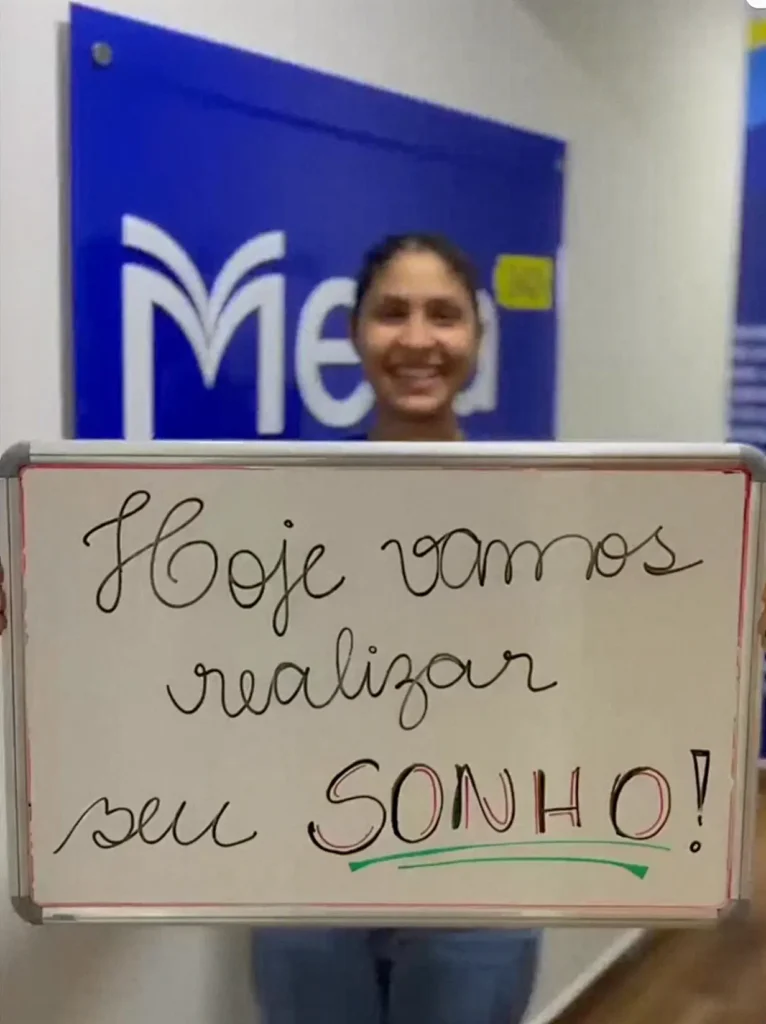 Me
Hoje vamos
realizar
seu SONHO!